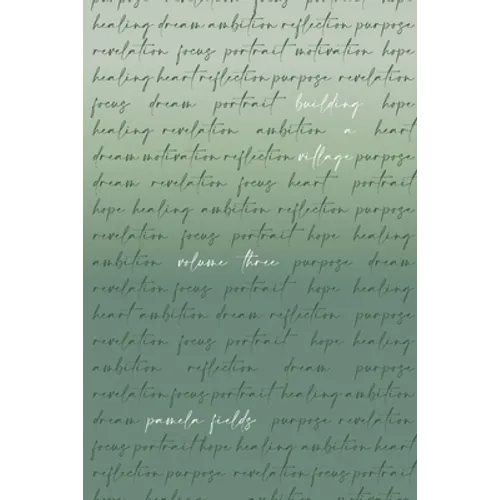 purpose revelation focus portrait hope
healing dream ambition reflection purpose
revelation focus portrait motivation hope
healing heart reflection purpose revelation
focus dream portrait building hope
healing revelation ambition a heart
dream motivation reflection village purpose
dream revelation focus heart portrait
hope healing ambition reflection purpose
revelation focus portrait hope healing
ambition volume three purpose dream
revelation focus portrait hope healing
heart ambition dream reflection purpose
revelation focus portrait hope healing
ambition reflection dream purpose
revelation focus portrait healing ambition
dream pamela fields purpose revelation
focus portrait hope healing ambition heart
reflection purpose revelation focus portrait
hope healing ambition motivation heart